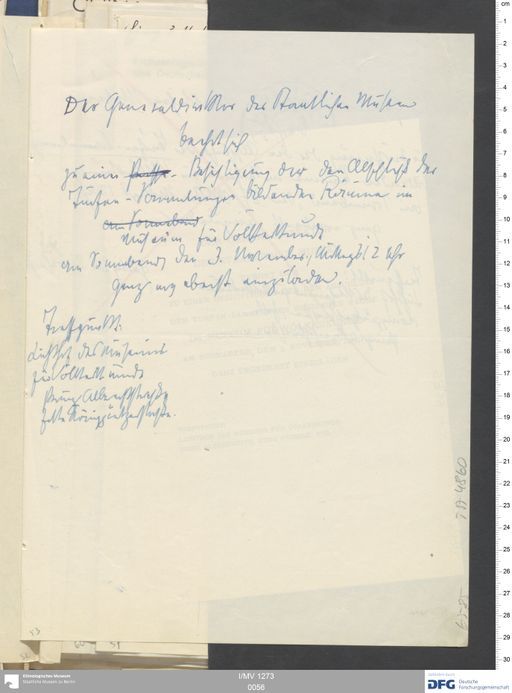 Der Generaldirektor der Staatlichen Museen
beehrt sich
zu einer Besichtigung der den Abschluß der
Turfan-Sammlungen bildenden Räume im
am Sonnabend
Museum für Völkerkunde
am Sonnabend, den 3. November, Mittags 12 Uhr
ganz ergebenst einzuladen.
Treffpunkt:
Lichthof des Museums
für Völkerkunde
Prinz Albrechtstraße
Ecke Königgrätzerstraße.
TA 4860
53
Ethnologisches Museum
Staatliche Museen zu Berlin
I/MV 1273
0056
DFG
Deutsche
Forschungsgemeinschaft
cm
1
2
3
4
5
6
7
8
9
10
11
12
13
14
15
16
17
18
19
20
21
22
23
24
25
26
27
28
29
30